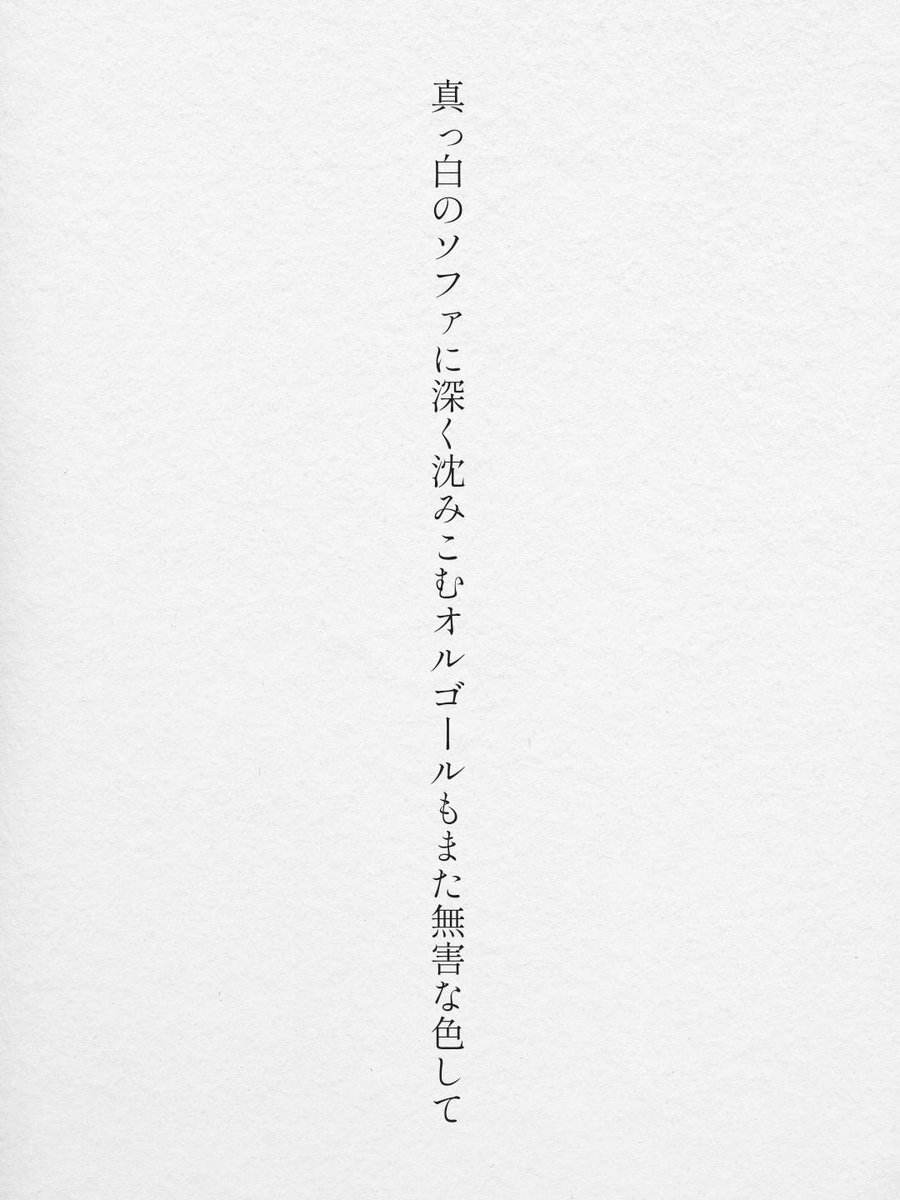 真っ白のソファに深く沈みこむオルゴールもまた無害な色して